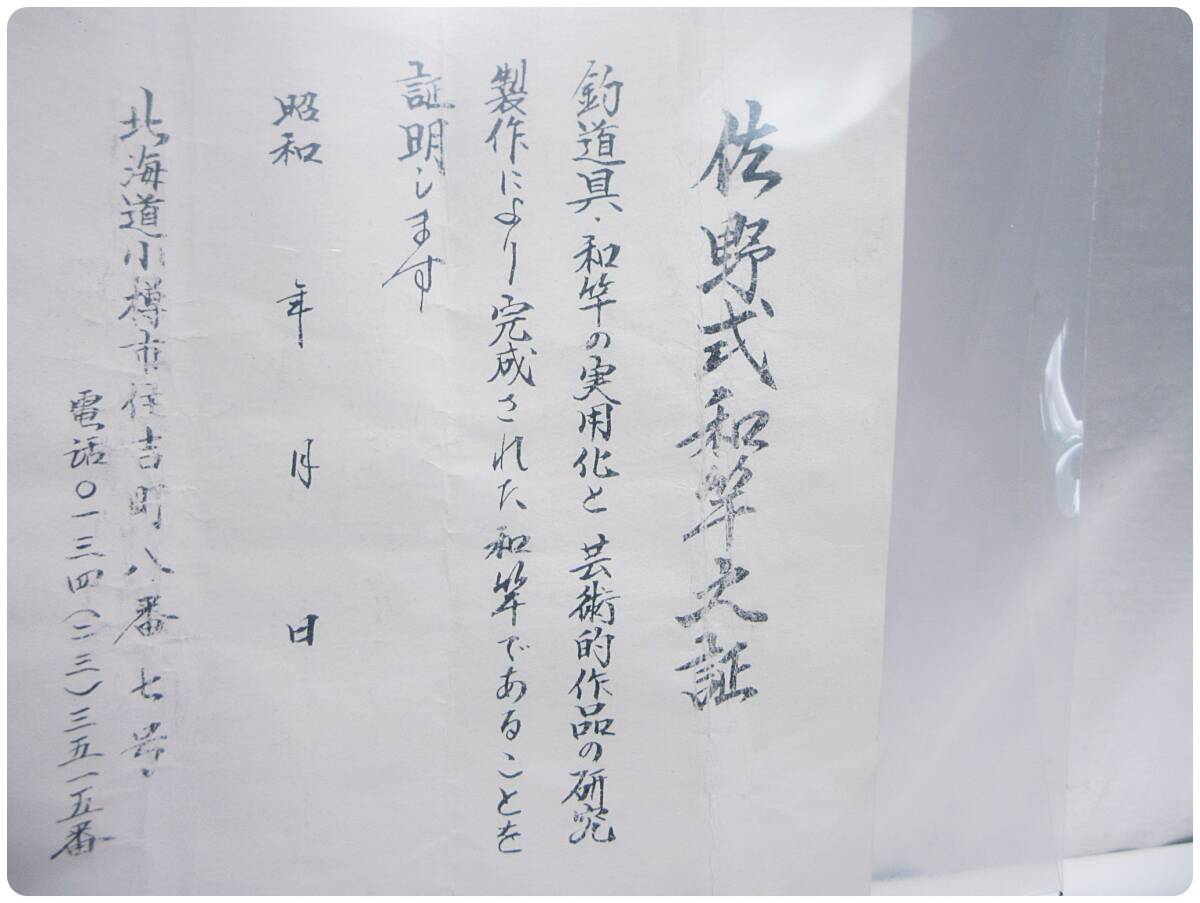 佐野式和竿之証
釣道具・和竿の実用化と芸術的作品の研究
製作により完成された和竿であることを
証明します
昭和 年 月 日
北海道小樽市住吉町八番七号
電話〇一三四(二三)三五一五番